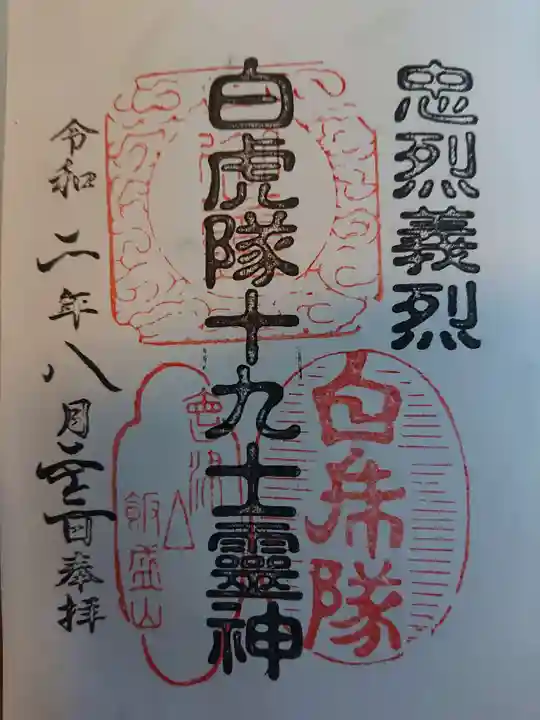 忠烈義烈
白虎隊十九士靈神
白乕隊
會津
飯盛山
令和二年八月 日奉拝